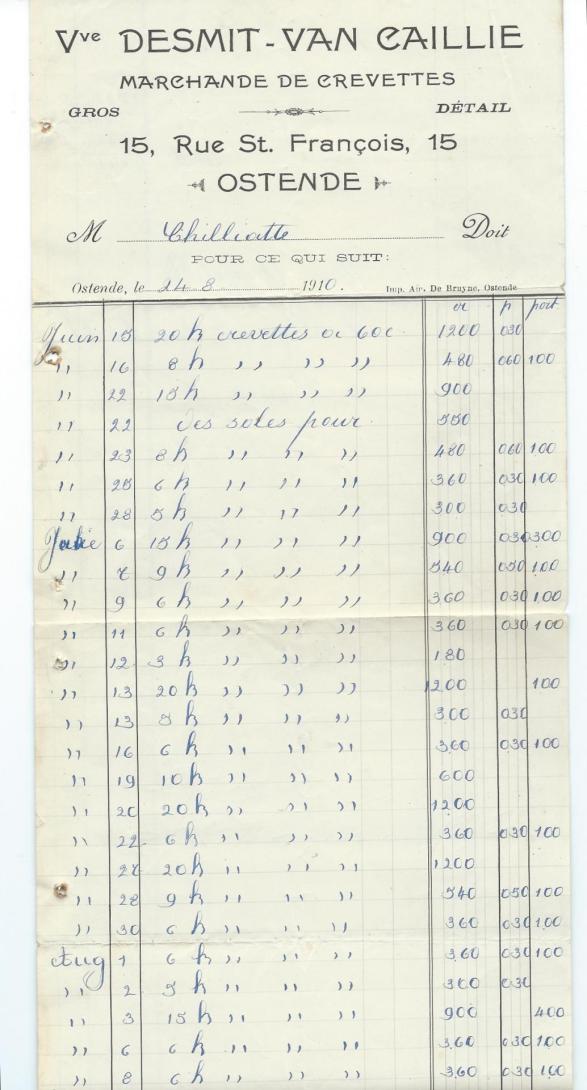 Vve DESMIT-VAN CAILLIE
MARCHANDE DE CREVETTES
GROS DÉTAIL
15, Rue St. François, 15
OSTENDE
M Chilliatte Doit
POUR CE QUI SUIT:
Ostende, le 24 8 1910. Imp. Air. De Bruyne, Ostende
p port
Juin 15 20 k crevettes a 60c 1200 030
,, 16 8 k ,, ,, ,, 480 060 100
,, 22 15 k ,, ,, ,, 900
,, 22 des soles pour 550
,, 23 8 k ,, ,, ,, 480 060 100
,, 25 6 k ,, ,, ,, 360 030 100
,, 28 5 k ,, ,, ,, 300 030
6 15 k ,, ,, ,, 900 030 300
,, 7 9 k ,, ,, ,, 540 050 100
,, 9 6 k ,, ,, ,, 360 030 100
,, 11 6 k ,, ,, ,, 360 030 100
,, 12 3 k ,, ,, ,, 180
,, 13 20 k ,, ,, ,, 1200 100
,, 13 5 k ,, ,, ,, 300 030
,, 16 6 k ,, ,, ,, 360 030 100
,, 19 10 k ,, ,, ,, 600
,, 20 20 k ,, ,, ,, 1200
,, 22 6 k ,, ,, ,, 360 030 100
,, 27 20 k ,, ,, ,, 1200
,, 28 9 k ,, ,, ,, 540 050 100
,, 30 6 k ,, ,, ,, 360 030 100
Aug 1 6 k ,, ,, ,, 360 030 100
,, 2 5 k ,, ,, ,, 300 030
,, 3 15 k ,, ,, ,, 900 400
,, 6 6 k ,, ,, ,, 360 030 100
,, 8 6 k ,, ,, ,, 360 030 100